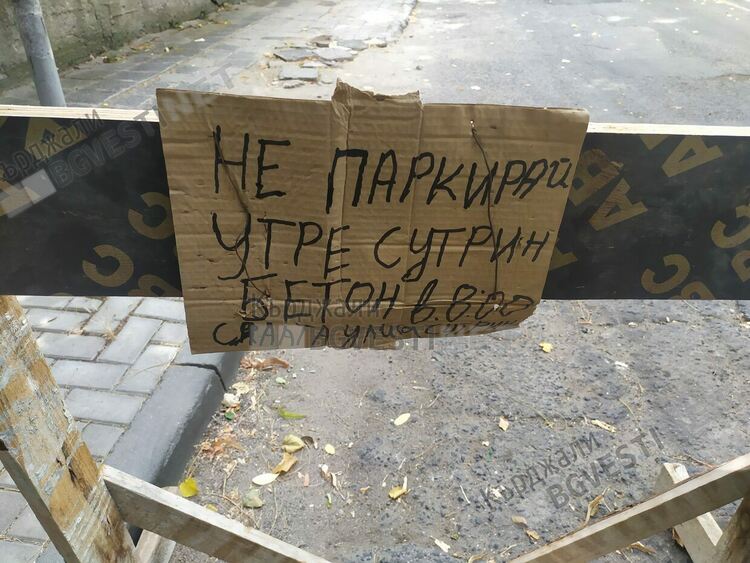 НЕ ПАРКИРАЙ
УТРЕ СУТРИН
БЕТОН в. 8:00
Кърджали
BGVESTI.NET
Кърджали
Кърджали
BGVESTI